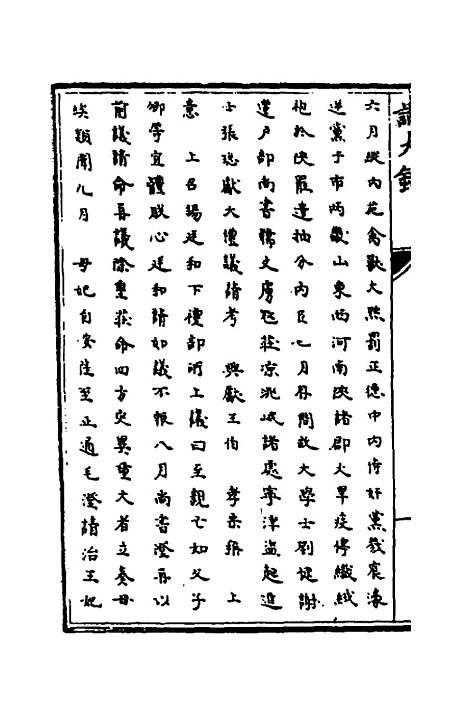 六月縱內苑禽獸大熱罰正德中內侍奸黨戮哀潒
逆黨于市兩畿山東西河南陝諸郡大旱疫停織絨
袍於陝罷遣抽分內臣七月存問故大學士劉健謝
遷戶部尚書韓文虜犯莊涼洮岷諸處寧津盜起進
士張璁獻大禮議請考 興獻王伯 孝宗稱 上
意 上召楊廷和下禮部所上議曰至親亡如父子
卿等宜體朕心廷和請如議不報八月尚書澄再以
前議請命再議除皇莊命四方災異重大者立奏毋
埃類聞九月 母妃自安陸至正通毛澄請治王妃